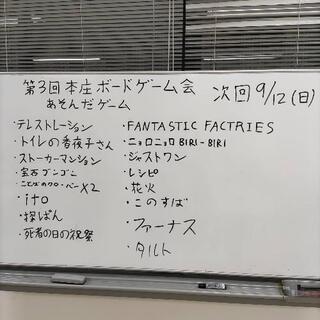 第3回本庄ボードゲーム会
次回9/12(日)
あそんだゲーム
・テレストレーション
・トイレの香夜子さん
・ストーカーマンション
・宝石ブンブン
・ことばのクローバー×2
・ito
・探ぱん
・死者の日の祝祭
・FANTASTIC FACTRIES
・ニョロニョロBIRI-BIRI
・ジャストワン
・レシピ
・花火
・このすば
・ファーナス
・タルト